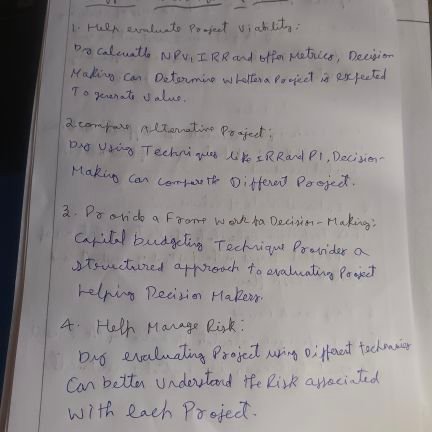 1. Help evaluate Project Viability:
By calculatte NPV, IRR and offer Metrics, Decision
Making can Determine whether a Project is expected
To generate value.
2. compare Alternative Project:
By Using Techniques like IRR and PI, Decision-
Making can compare the Different Project.
3. Provide a Frame work for Decision-Making:
Capital budgeting Technique Provides a
structured approach to evaluating Project
helping Decision Makers.
4. Help Manage Risk:
By evaluating Project using Different techniques
Can better Understand the Risk associated
With each Project.